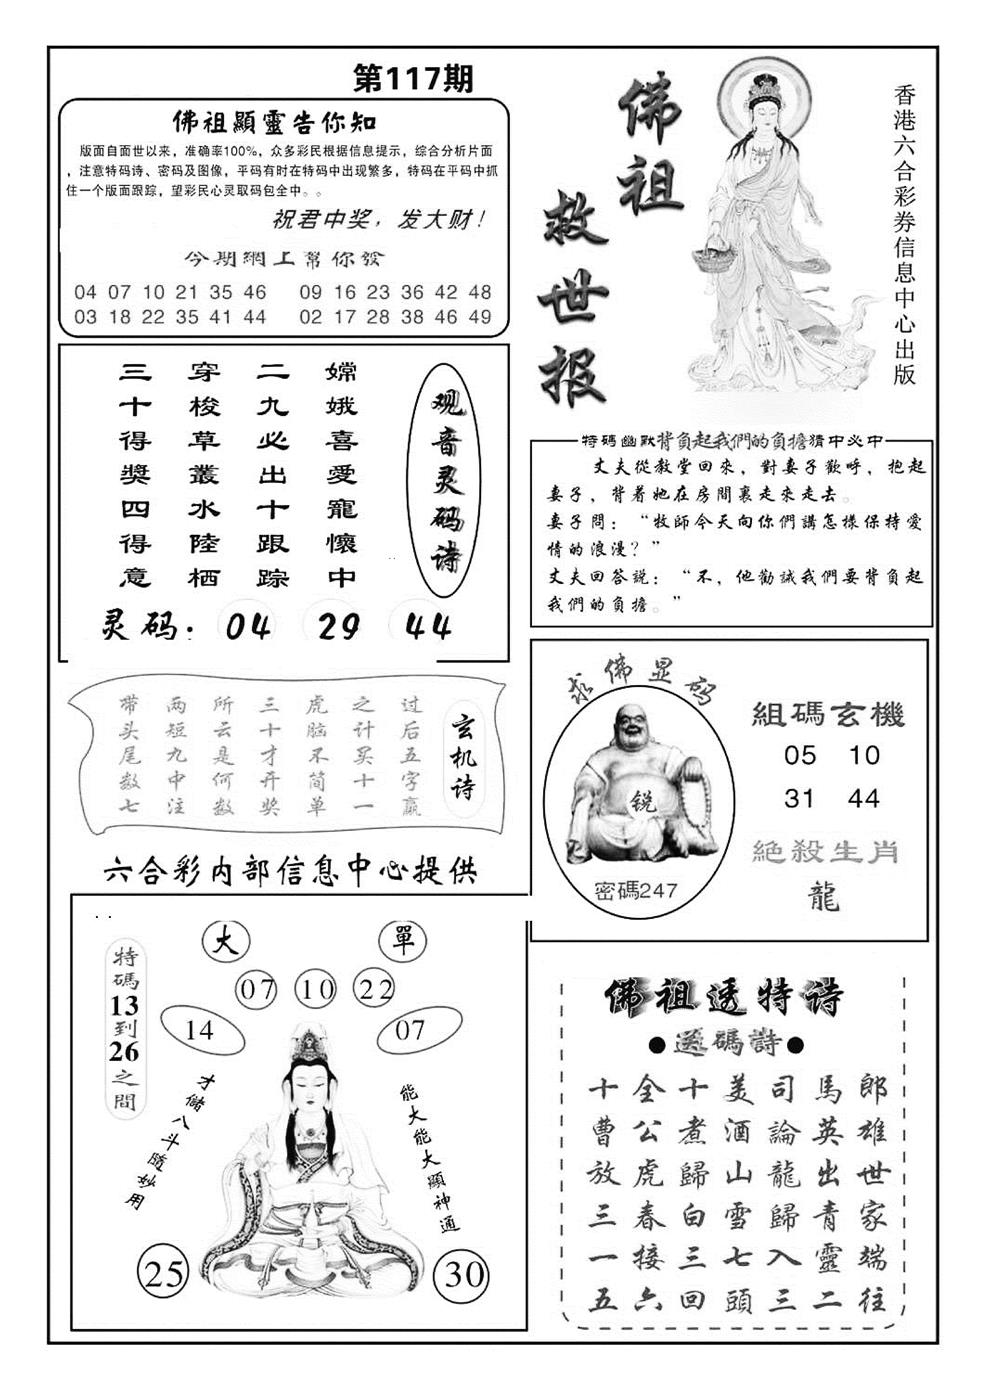 第117期
佛祖顯靈告你知
版面自面世以来，准确率100%，众多彩民根据信息提示，综合分析片面
，注意特码诗、密码及图像，平码有时在特码中出现繁多，特码在平码中抓
住一个版面跟踪，望彩民心灵取码包全中。。
祝君中奖，发大财！
今期網上幫你發
04 07 10 21 35 46 09 16 23 36 42 48
03 18 22 35 41 44 02 17 28 38 46 49
佛祖
救世报
香港六合彩券信息中心出版
观音灵码诗
嫦娥喜愛寵懷中
二九必出十跟踪
穿梭草叢水陸栖
三十得獎四得意
灵码：04 29 44
特碼幽默背负起我們的负擔猜中必中
丈夫從教堂回來，對妻子歡呼，抱起
妻子，背着她在房間裏走來走去。
妻子問：“牧師今天向你們講怎樣保持愛
情的浪漫？”
丈夫回答說：“不，他勸誡我們要背負起
我們的负擔。”
玄机诗
过后五字赢
之计买十一
虎脑不简单
三十才开奖
所云是何数
两短九中注
带头尾数七
六合彩内部信息中心提供
求佛显码
锐
密碼247
組碼玄機
05 10
31 44
絕殺生肖
龍
..
特碼13到26之間
大 單
07 10 22
14 07
才儲八斗隨妙用
能大能大顯神通
25 30
佛祖透特诗
●送碼詩●
郎雄世家端往
馬英出青靈二
司論龍歸入三
美酒山雪七頭
十煮歸白三回
全公虎春接六
十曹放三一五